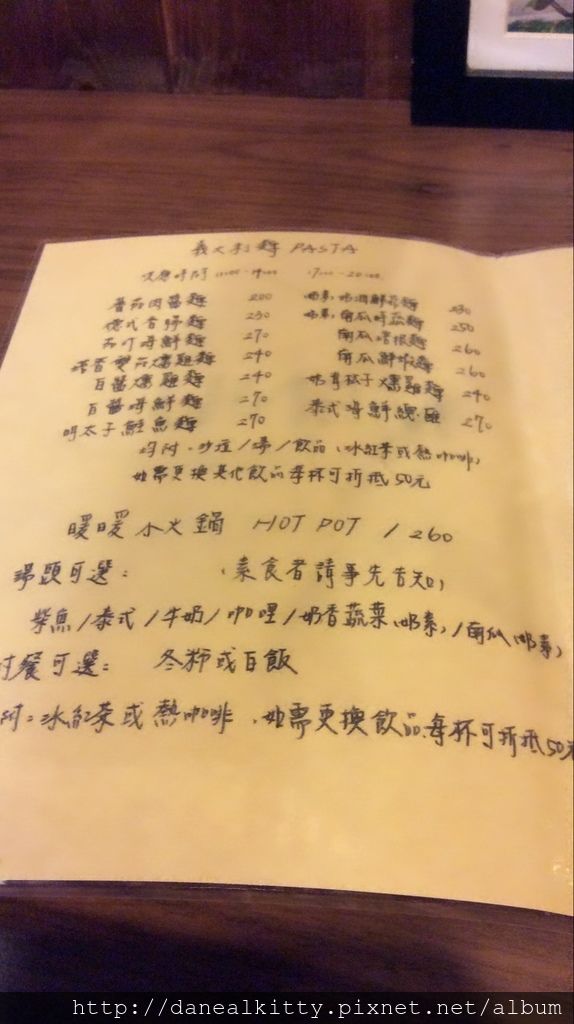 義大利麵 PASTA
供應時間 11:00-14:00 17:00-20:00
番茄肉醬麵 200
德式香腸麵 230
茄汁海鮮麵 270
塔香雙茄燻雞麵 240
白醬燻雞麵 240
白醬海鮮麵 270
明太子鮭魚麵 270
奶素,奶油鮮菇麵 230
奶素,南瓜時蔬麵 250
南瓜培根麵 260
南瓜鮮蝦麵 260
奶青松子燻雞麵 240
泰式海鮮總匯 270
均附.沙拉/湯/飲品(冰紅茶或熱咖啡)
如需更換其他飲品每杯可折抵50元
暖暖小火鍋 HOT POT /260
湯頭可選: (素食者請事先告知)
柴魚/泰式/牛奶/咖哩/奶香蔬菜(奶素)/南瓜(奶素)
附餐可選: 冬粉或白飯
附:冰紅茶或熱咖啡.如需更換飲品.每杯可折抵50元
http://danealkitty.pixnet.net/album